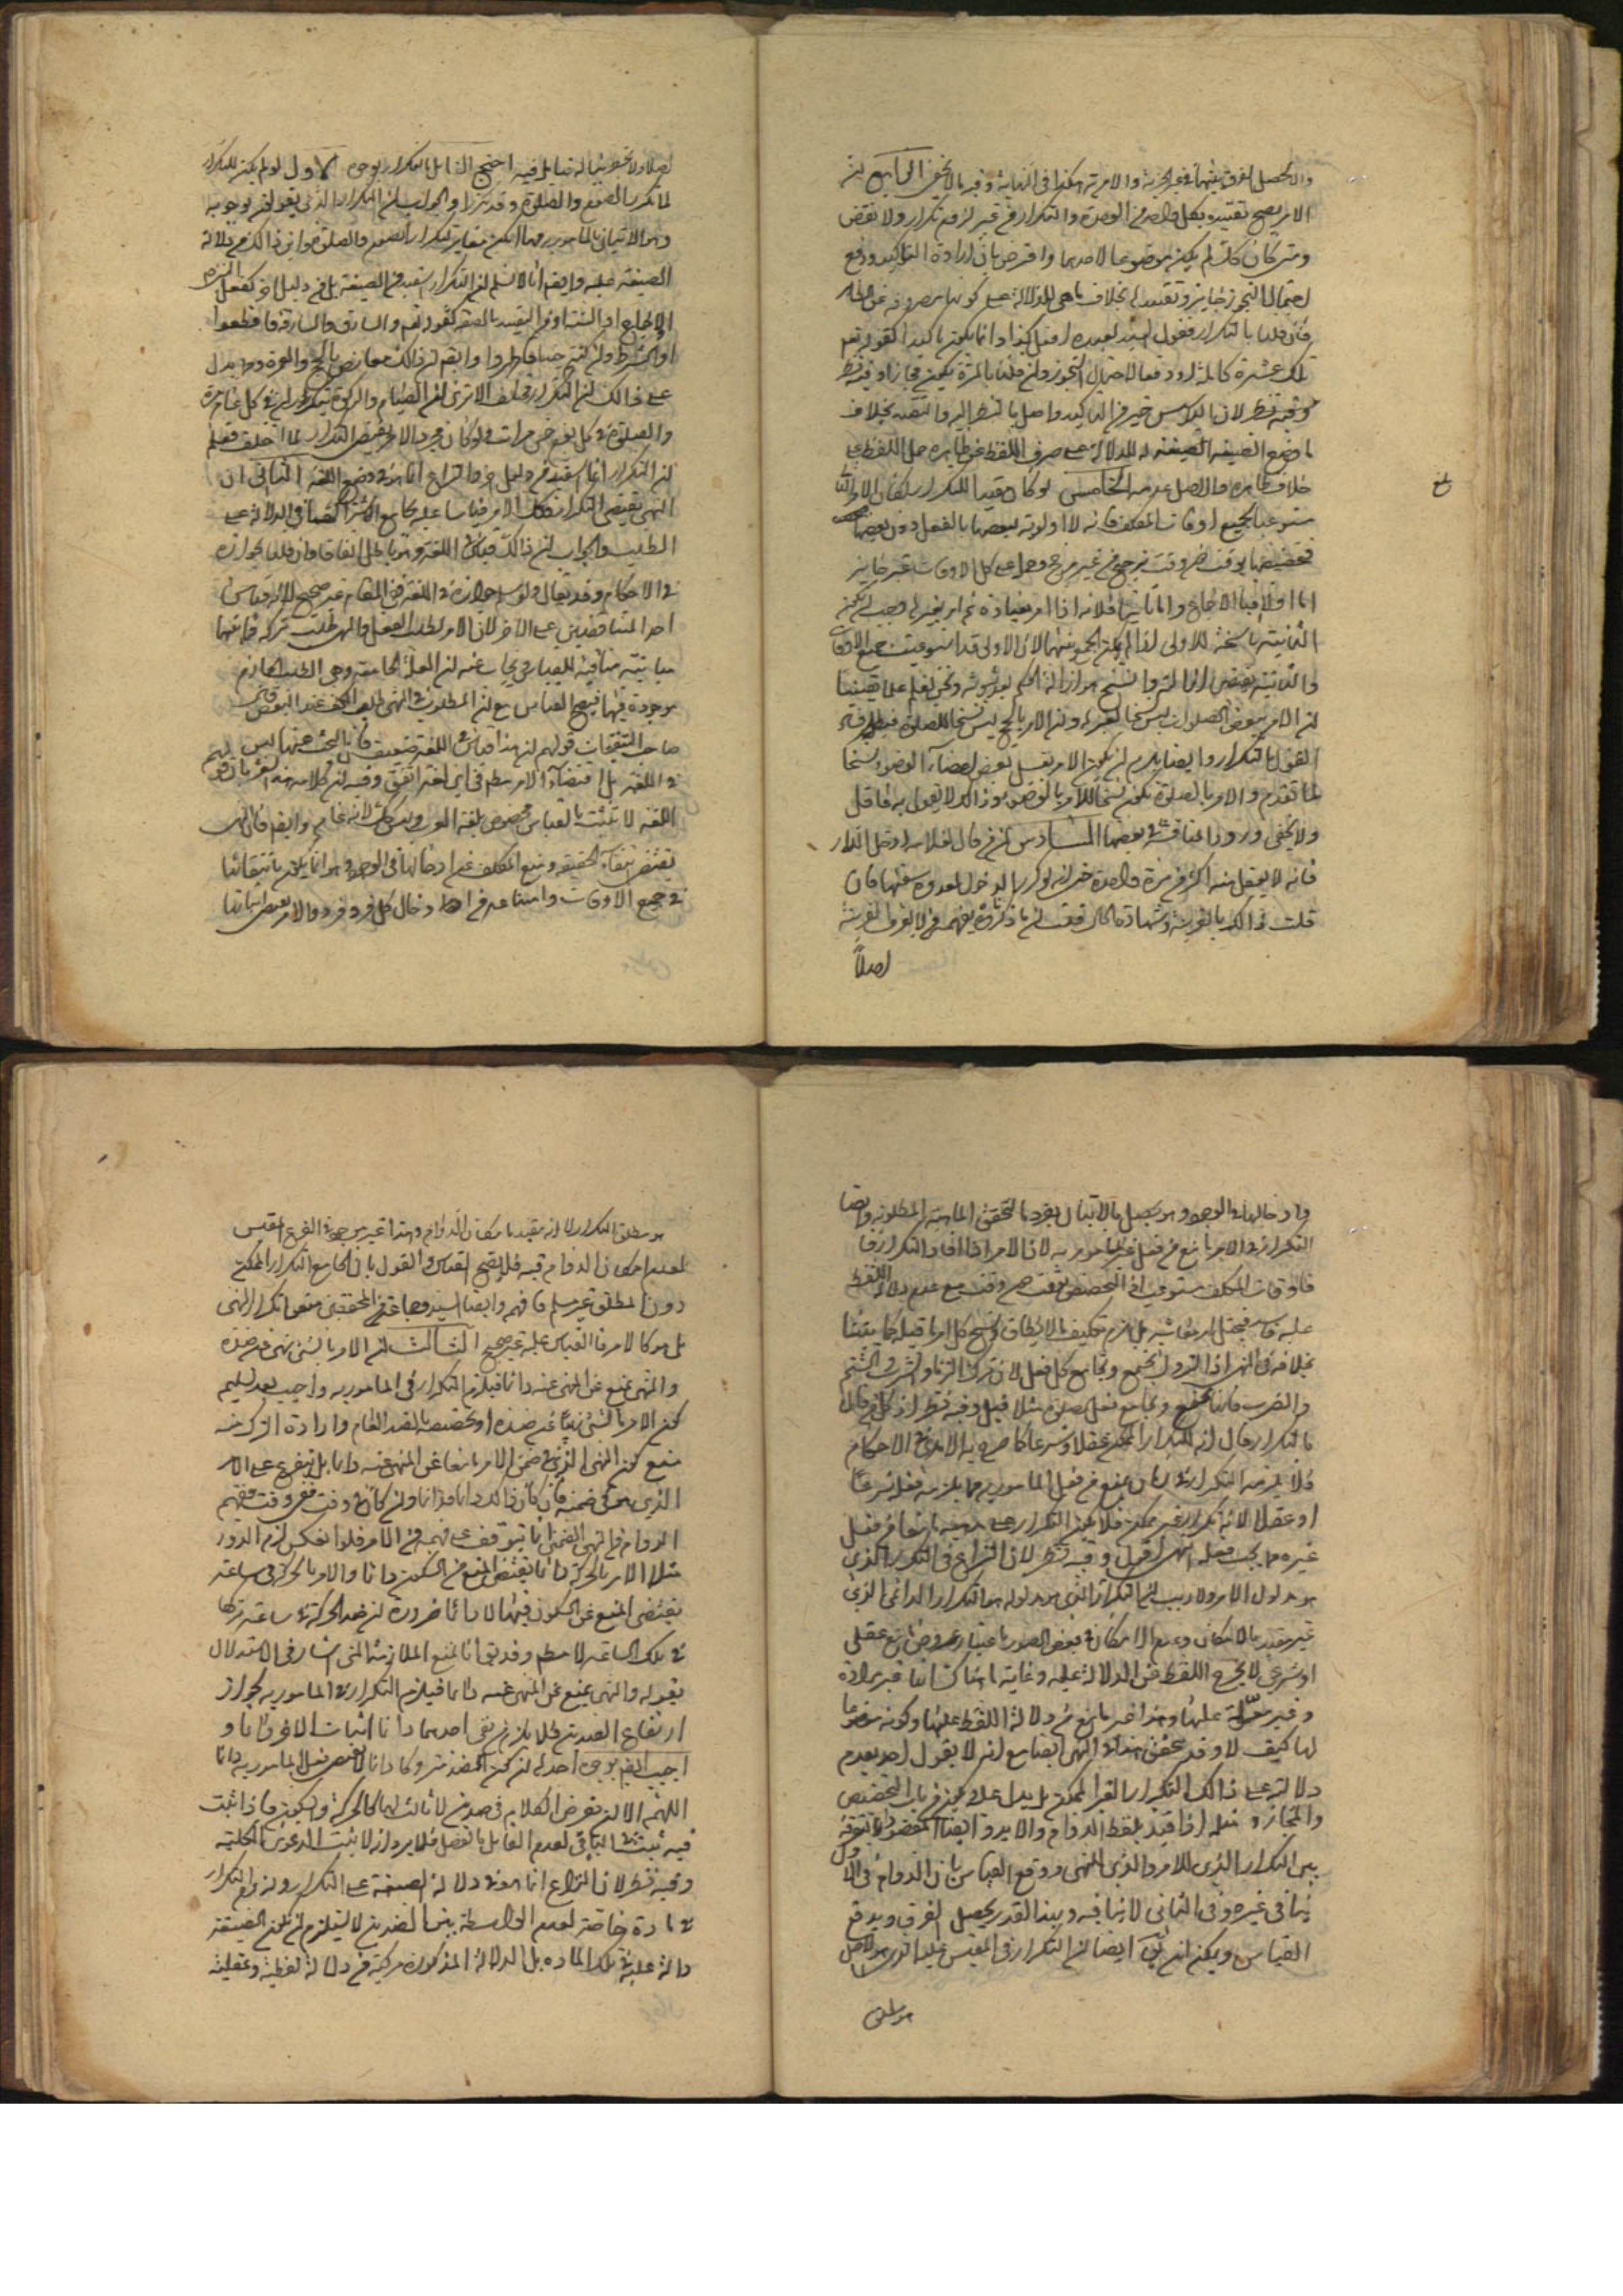 الامر يصح تقييده بكل واحد من الوحدة والتكرار من غير لزوم تكرار ولا نقض
ومتى كان كك لم يكن موضوعا لاحدهما واعترض بان ارادة التاكيد ودفع
احتمال التجوز جايز وتقييد
فان قلنا بالتكرار فقول السيد لعبده افعل كذا دائما يكون تاكيدا كقوله تعم
تلك عشرة كاملة او دفعا لاحتمال التجوز وان قلنا بالمرة يكون مجازا وفيه نظر
وفيه نظر لان التاكيد حاصل بالنظر اليه والتقييد بخلاف
ما وضع الصيغة له للدلالة على صرف اللفظ عن ظاهره حمل اللفظ على
خلاف ظاهره والاصل عدمه الخامس لو كان مفيدا للتكرار لكان الامر
مستوعبا لجميع اوقات المكلف فانه لا اولوية لبعضها بالفعل دون بعضها
فتخصيصها بوقت دون وقت ترجيح من غير مرجح وحمله على كل الاوقات غير جايز
اما اولا فبالاجماع واما ثانيا فلانه اذا امر بعبادة ثم امر بغيرها وجب ان يكون
الثانية ناسخة للاولى اذا لم يكن الجمع بينهما لان الاولى قد استوعبت جميع الاوقات
والثانية يقتضى ازالته والنسخ هو ازالة الحكم بعد ثبوته ونحن نعلم علما يقينيا
ان الامر ببعض الصلوات ليس نسخا لغيره وان الامر بالحج ليس نسخا للصلوة فبطل
القول بالتكرار وايضا يلزم ان يكون الامر بغسل بعض اعضاء الوضوء نسخا
لما تقدم والامر بالصلوة يكون نسخا للامر بالوضوء وذالك لا يقول به عاقل
ولا يخفى ورود المناقشة في بعضها السادس ان من قال لغلامه ادخل الدار
فانه لا يعقل منه اكثر من مرة واحدة حتى انه لو كرر الدخول لعدوه سفيها فان
قلت ذالك بالقرينة وشهادة الحال قلت ان ما ذكرناه يفهمه من لا يعرف القرينة
اصلاً
اصلا ولا تخطر بباله فتامل فيه احتج القايل بالتكرار بوجوه الاول لو لم يكن للتكرار
لما تكرر الصوم والصلوة وقد تكررا والجواب ان التكرار الذي يقولون بوجوبه
وهو الاتيان بالمامور به مهما امكن مغاير لتكرار الصوم والصلوة واين ذالك من دلالة
الصيغة عليه وايضم انا لا نسلم ان التكرار يستفيد من الصيغة بل من دليل اخر كفعل النبي ص
او الاجماع او السنة او من التقييد بالصفة كقوله تعم والسارق والسارقة فاقطعوا
او الشرط وان كنتم جنبا فاطهروا وايضم ان ذالك معارض بالحج والعمرة ومما يدل
على ذالك ان التكرار مختلف الا ترى ان الصيام والزكوة يتكرران في كل عام مرة
والصلوة في كل يوم خمس مرات ولو كان مجرد الامر يقتضى التكرار لما اختلف فعلم
ان التكرار انما يستفيد من دليل اخر والنزاع انما هو في وضع اللغة الثاني ان
النهي يقتضى التكرار فكك الامر قياسا عليه بجامع اشتراكهما في الدلالة على
الطلب والجواب ان ذالك قياس في اللغة وهو باطل اتفاقا وان قلنا بجوازه
في الاحكام وقد يقال ولو سلم جوازه في اللغة ففي المقام غير صحيح لانه قياس
احد المتناقضين على الاخر لان الامر لطلب الفعل والنهي لطلب تركه فبينهما
مباينة منافية للقياس ويجاب عنه ان العلة الجامعة وهي الطلب الجازم
موجودة فيهما فيصح القياس مع ان المطلوب في النهي طلب الكف عند البعض
صاحب التنقيحات قولهم ان هذا قياس في اللغة ضعيف فان البحث هيهنا ليس
في اللغة بل اقتضاء الامر مطلقا في اى لغة اتفق
اللغة لا تثبت بالقياس مخصوص بلغة العرب وليس كذلك لانه عام وايضم فان النهي
يقتضى انتفاء الحقيقة ومنع المكلف عن ادخالها في الوجود وهو انما يكون بانتفائها
في جميع الاوقات وامتناعه من ادخال كل فرد فرد والامر يقتضى اثباتها
وادخالها في الوجود وهو يحصل بالاتيان بفرد ما لتحقق الماهية المطلوبة وايضا
التكرار في الامر مانع من فعل غير المامور به لان الامر اذا افاد التكرار
فاوقات المكلف مستوعبة اذ التخصيص بوقت دون وقت مع عدم دلالة اللفظ
عليه فاسد فيختل امر معاشه بل يلزم تكليف ما لا يطاق كما بيننا
بخلافه في النهي اذ التروك تجتمع وتجامع كل فعل لان ترك الزنا والسرقة والشتم
والضرب مما يجتمع ويجامع فعل الصلوة مثلا قيل وفيه نظر اذ كل من قال
بالتكرار قال انه للتكرار الممكن عقلا وشرعا كما صرح به الآمدي في الاحكام
فلا يلزم التكرار اذا كان يمنع من فعل المامور به مما يلزمه فعله شرعا
او عقلا لانه تكرار غير ممكن فلا يكون التكرار مانعا من فعل
غيره مما يجب فعله انتهى اقول وفيه نظر لان النزاع في التكرار الذي
هو مدلول الامر ولا ريب ان التكرار الذي هو مدلوله هو التكرار الدائمي الذي
غير مقيد بالامكان وعدم الامكان في بعض الصور باعتبار عروض مانع عقلي
او شرعي لا يخرج اللفظ عن الدلالة عليه وغايته انها غير مرادة
وغير معولة عليها وهذا غير مانع من دلالة اللفظ عليها وكونه موضوعا
لها كيف لا وقد تحقق هذا في النهي ايضا مع انه لا يقول احد بعدم
دلالته على ذالك التكرار الغير الممكن بل يدل عليه ويكون من باب التخصيص
والمجاز ومنه اذا قيد بلفظ الدوام والابد وايضا المقصود التفرقة
بين التكرار الذي للامر والذي للنهي ودفع القياس بان الدوام في الاول
ينافي غيره وفي الثاني لا ينافيه وبهذا القدر يحصل الفرق ويدفع
القياس ويمكن ان يقال ايضا ان التكرار في المقيس عليه الذي هو الاصل
هو مطلق
هو مطلق التكرار لا انه مقيد بامكان الدوام وهذا غير موجود في الفرع المقيس
لعدم امكان الدوام فيه فلا يصح القياس والقول بان الجامع التكرار الممكن
دون المطلق غير مسلم فافهم وايضا السيد وجماعة من المحققين منعوا تكرار النهي
بل هو كالامر فالقياس عليه غير صحيح الثالث ان الامر بالشئ نهي عن ضده
والنهي يمنع عن المنهي عنه دائما فيلزم التكرار في المامور به واجيب بعد تسليم
كون الامر بالشئ نهيا عن ضده او تخصيصه بالضد العام وارادة الترك منه
بمنع كون النهي الذي في ضمن الامر مانعا عن المنهي عنه دائما بل يتفرع على الامر
الذي هو في ضمنه فان كان ذالك دائما فدائما وان كان في وقت ففي وقت ففهم
الدوام من النهي الضمني انما يتوقف على فهمه من الامر فلو انعكس لزم الدور
مثلا الامر بالحركة دائما يقتضى المنع من السكون دائما والامر بالحركة في ساعة
يقتضى المنع عن السكون فيها لا دائما ضرورة ان ضد الحركة في ساعة تركها
في تلك الساعة لا مطم وقد يقال انا نمنع الملازمة التي اشار في الاستدلال
بقوله والنهي يمنع عن المنهي عنه دائما فيلزم التكرار في المامور به لجواز
ارتفاع الضدين فلا يلزم من نفي احدهما دائما اثبات الاخر دائما و
اجيب ايضم بوجوه احدها ان كون الضد متروكا دائما لا يقتضى فعل المامور به دائما
اللهم الا ان يفرض الكلام في ضدين لا ثالث لهما كالحركة والسكون فاذا ثبت
فيه ثبت في الباقي لعدم القايل بالفصل فلا يرد انه لا يثبت الدعوى الكلية
وفيه نظر لان النزاع انما هو في دلالة الصيغة على التكرار ولزوم التكرار
في مادة خاصة لعدم الواسطة بين الضدين لا يستلزم ان تكون الصيغة
دالة عليه في تلك المادة بل الدلالة المذكورة مركبة من دلالة لفظية وعقلية